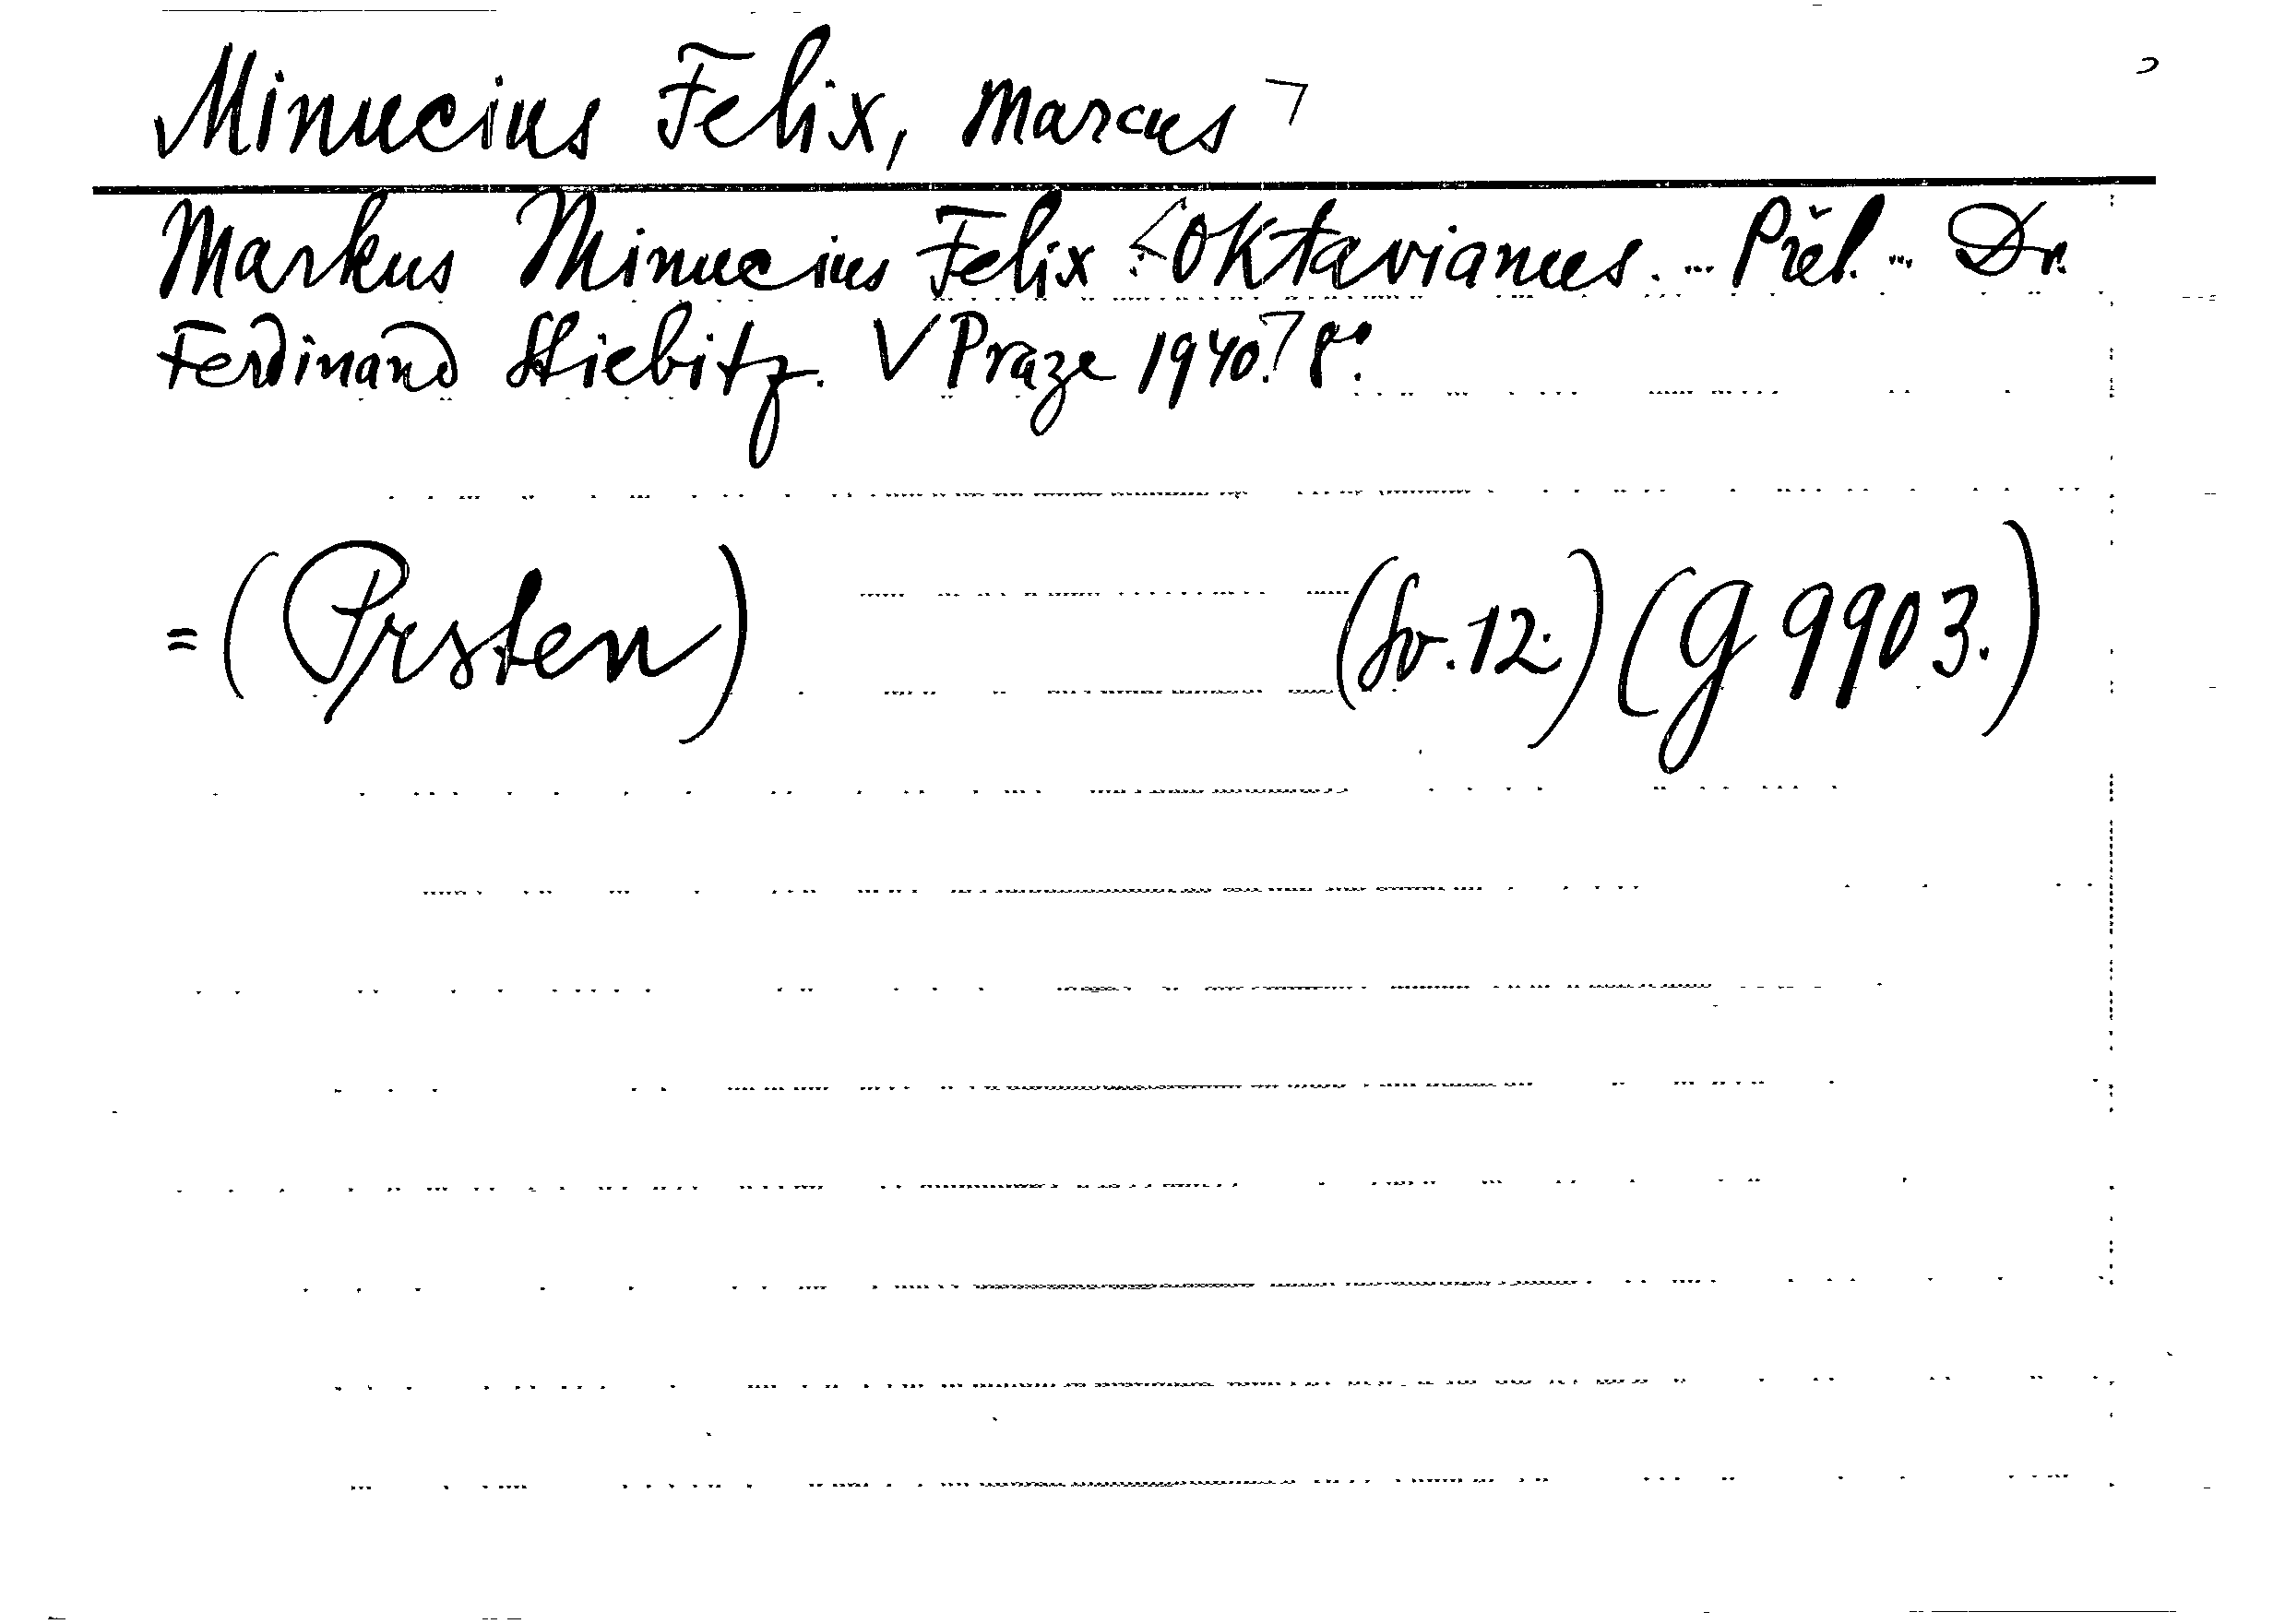 Minucius Felix, Marcus
Markus Minucius Felix: Oktavianus. ... Přel. ... Dr.
Ferdinand Stiebitz. V Praze 1940. 8°.
=(Prsten) (Sv. 12.) (G 9903.)